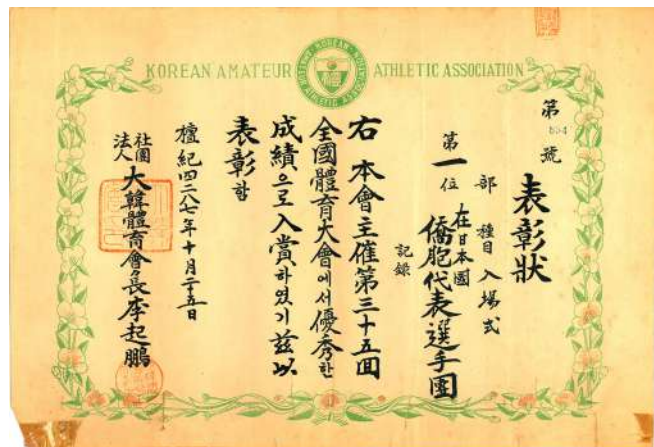 KOREAN AMATEUR ATHLETIC ASSOCIATION
第 號
表彰狀
部 種目 入場式
第一位 在日本國
僑胞代表選手團
記錄
右 本會主催第三十五回
全國體育大會에서優秀한
成績으로入賞하였기玆以
表彰함
檀紀四二八七年十月二十五日
社團法人 大韓體育會長李起鵬